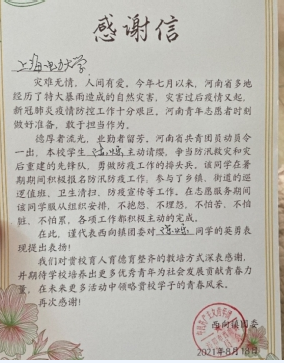 感谢信
上海电力大学:
灾难无情,人间有爱。今年七月以来,河南省多地
经历了特大暴雨造成的自然灾害,灾害过后疫情又起,
新冠肺炎疫情防控工作十分艰巨,河南青年志愿者时刻
做好准备,敢于担当作为。
德厚者流光,业勤者留芳。河南省共青团员动员令
一出,本校学生 主动请缨,争当防汛救灾和灾
后重建的先锋队,勇做防疫工作的排头兵。该同学在暑
假期间积极报名防汛防疫工作,参与了乡镇、街道的巡
逻值班,卫生清扫,防疫宣传等工作。在志愿服务期间
该同学服从组织安排,不抱怨、不埋怨、不怕苦、不怕
脏、不怕累,各项工作都积极主动的完成。
在此,谨代表西向镇团委对 同学的英勇表
现提出表扬!
我们对贵校育人育德育整养的教培方式深表感谢,
并期待学校培养出更多优秀青年为社会发展贡献青春力
量,在未来更多活动中领略贵校学子的青春风采。
再次感谢!
西向镇团委
2021年8月18日